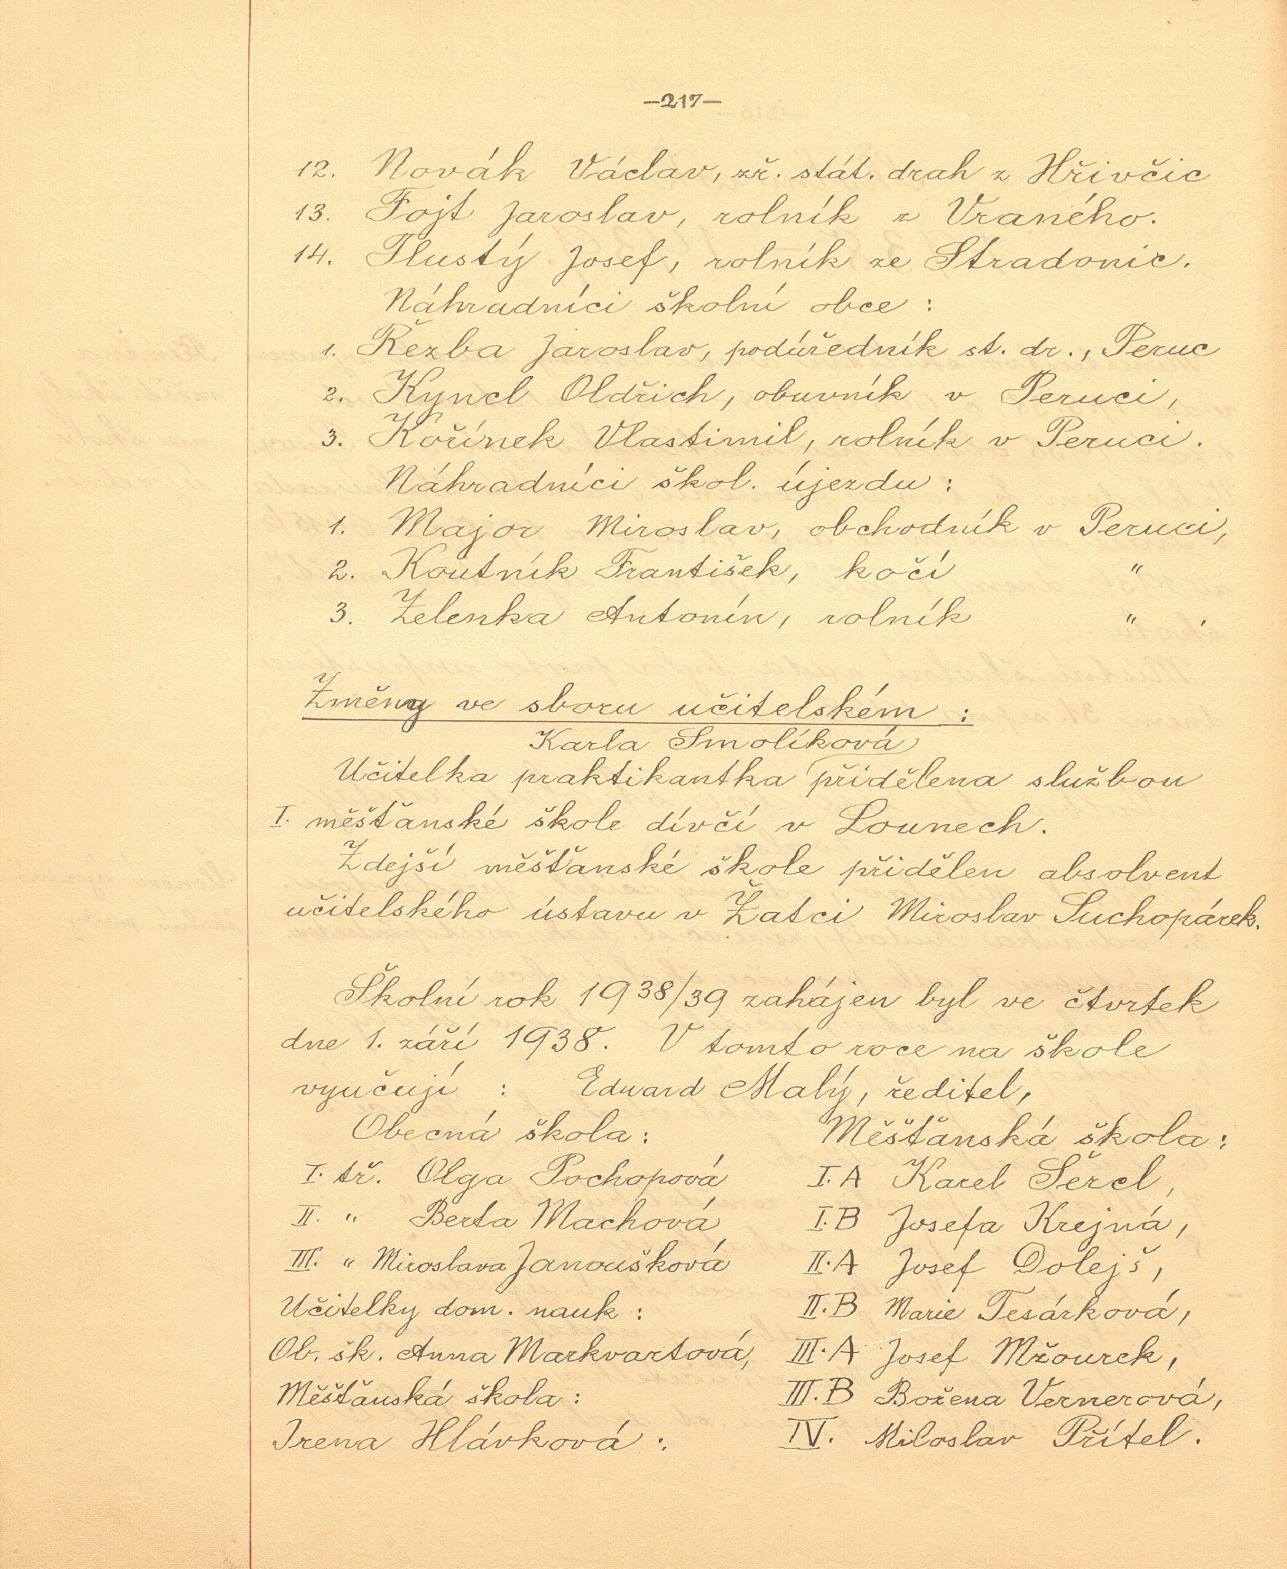 -217-
12. Novák Václav, zř. stát. drah z Hřivčic
13. Fojt Jaroslav, rolník z Vraného.
14. Tlustý Josef, rolník ze Stradonic.
Náhradníci školní obce :
1. Řezba Jaroslav, podúředník st. dr., Peruc
2. Kyncl Oldřich, obuvník v Peruci,
3. Kořínek Vlastimil, rolník v Peruci.
Náhradníci škol. újezdu :
1. Major Miroslav, obchodník v Peruci,
2. Koutník František, kočí "
3. Zelenka Antonín, rolník " .
Změny ve sboru učitelském :
Karla Smolíková
Učitelka praktikantka přidělena službou
I. měšťanské škole dívčí v Lounech.
Zdejší měšťanské škole přidělen absolvent
učitelského ústavu v Žatci Miroslav Suchopárek.
Školní rok 1938/39 zahájen byl ve čtvrtek
dne 1. září 1938. V tomto roce na škole
vyučují : Eduard Malý, ředitel,
Obecná škola : Měšťanská škola :
I. tř. Olga Pochopová I.A Karel Šercl,
II. " Berta Machová I.B Josefa Krejná,
III. " Miroslava Janoušková II.A Josef Dolejš,
Učitelky dom. nauk : II.B Marie Tesárková,
Ob. šk. Anna Markvartová, III.A Josef Mžourek,
Měšťanská škola : III.B Božena Vernerová,
Irena Hlávková : IV. Miloslav Přítel.